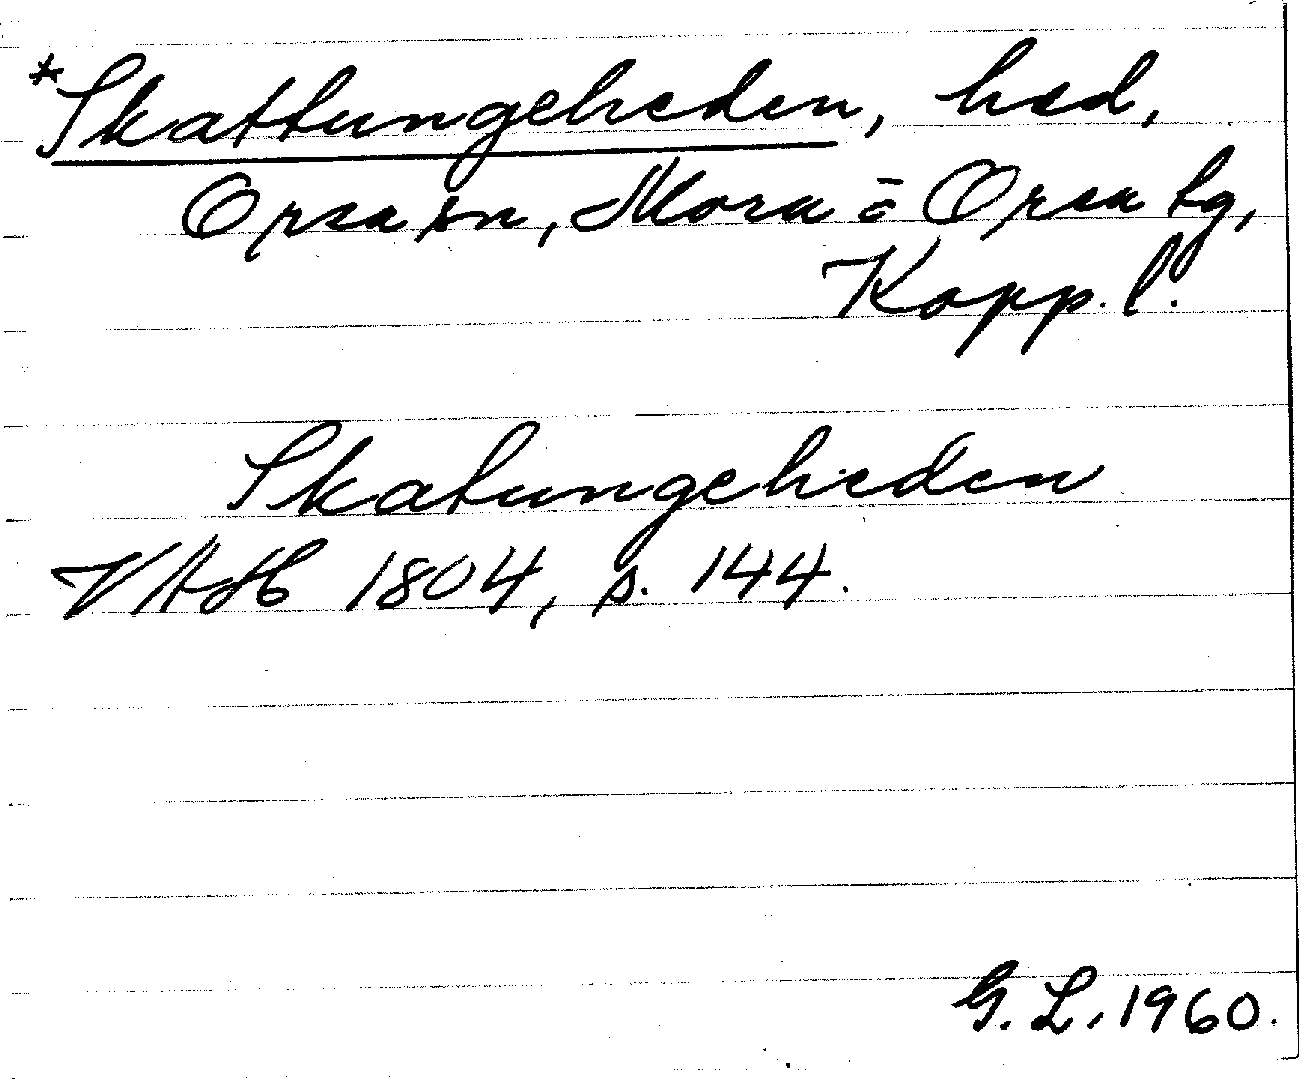 *Skattungeheden, hed,
Orsa sn, Mora o Orsa tg,
Kopp. l.
Skatungeheden
VAH 1804, s. 144.
G. L. 1960.